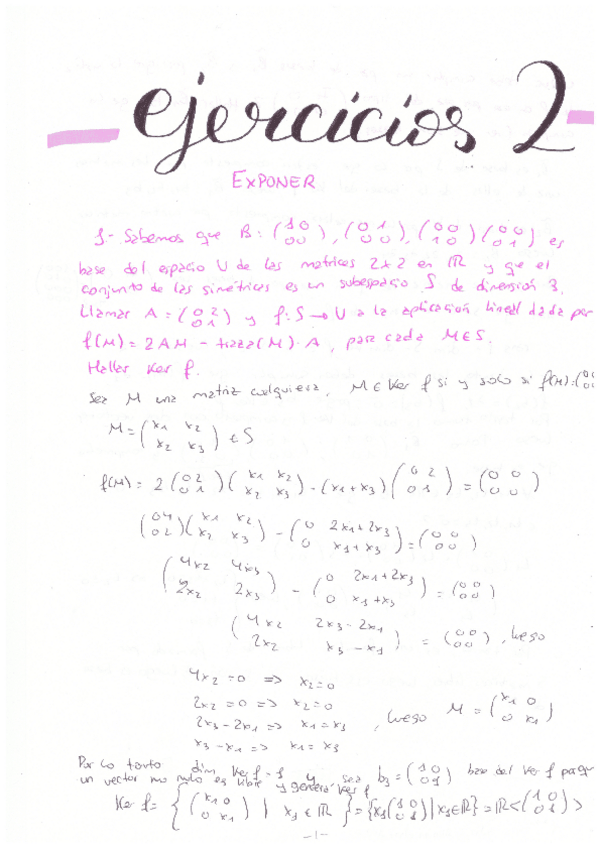 ejercicios 2
EXPONER
1- Sabemos que B: (1 0 / 0 0), (0 1 / 0 0), (0 0 / 1 0) (0 0 / 0 1) es
base del espacio U de las matrices 2x2 en ℝ y que el
conjunto de las simétricas es un subespacio S de dimensión 3.
Llamar A = (0 2 / 0 1) y f: S → U a la aplicación lineal dada por
f(M) = 2AM - traza(M)·A, para cada M∈S.
Hallar Ker f.
Sea M una matriz cualquiera, M ∈ Ker f si y solo si f(M)=(0 0
M = (x1 x2 / x2 x3) ∈ S
f(M) = 2 (0 2 / 0 1) (x1 x2 / x2 x3) - (x1+x3) (0 2 / 0 1) = (0 0 / 0 0)
(0 4 / 0 2) (x1 x2 / x2 x3) - (0 2x1+2x3 / 0 x1+x3) = (0 0 / 0 0)
(4x2 4x3 / 2x2 2x3) - (0 2x1+2x3 / 0 x1+x3) = (0 0 / 0 0)
(4x2 2x3-2x1 / 2x2 x3-x1) = (0 0 / 0 0), luego
4x2 = 0 => x2=0
2x2 = 0 => x2=0
2x3-2x1 => x1=x3, luego M = (x1 0 / 0 x1)
x3-x1 => x1=x3
Por lo tanto dim Ker f = 1 y sea b1 = (1 0 / 0 1) base del Ker f porque
un vector no nulo es libre y genera Ker f
Ker f = { (x1 0 / 0 x1) | x1 ∈ ℝ } = {x1 (1 0 / 0 1) | x1∈ℝ} = ℝ<(1 0 / 0 1)>
-1-